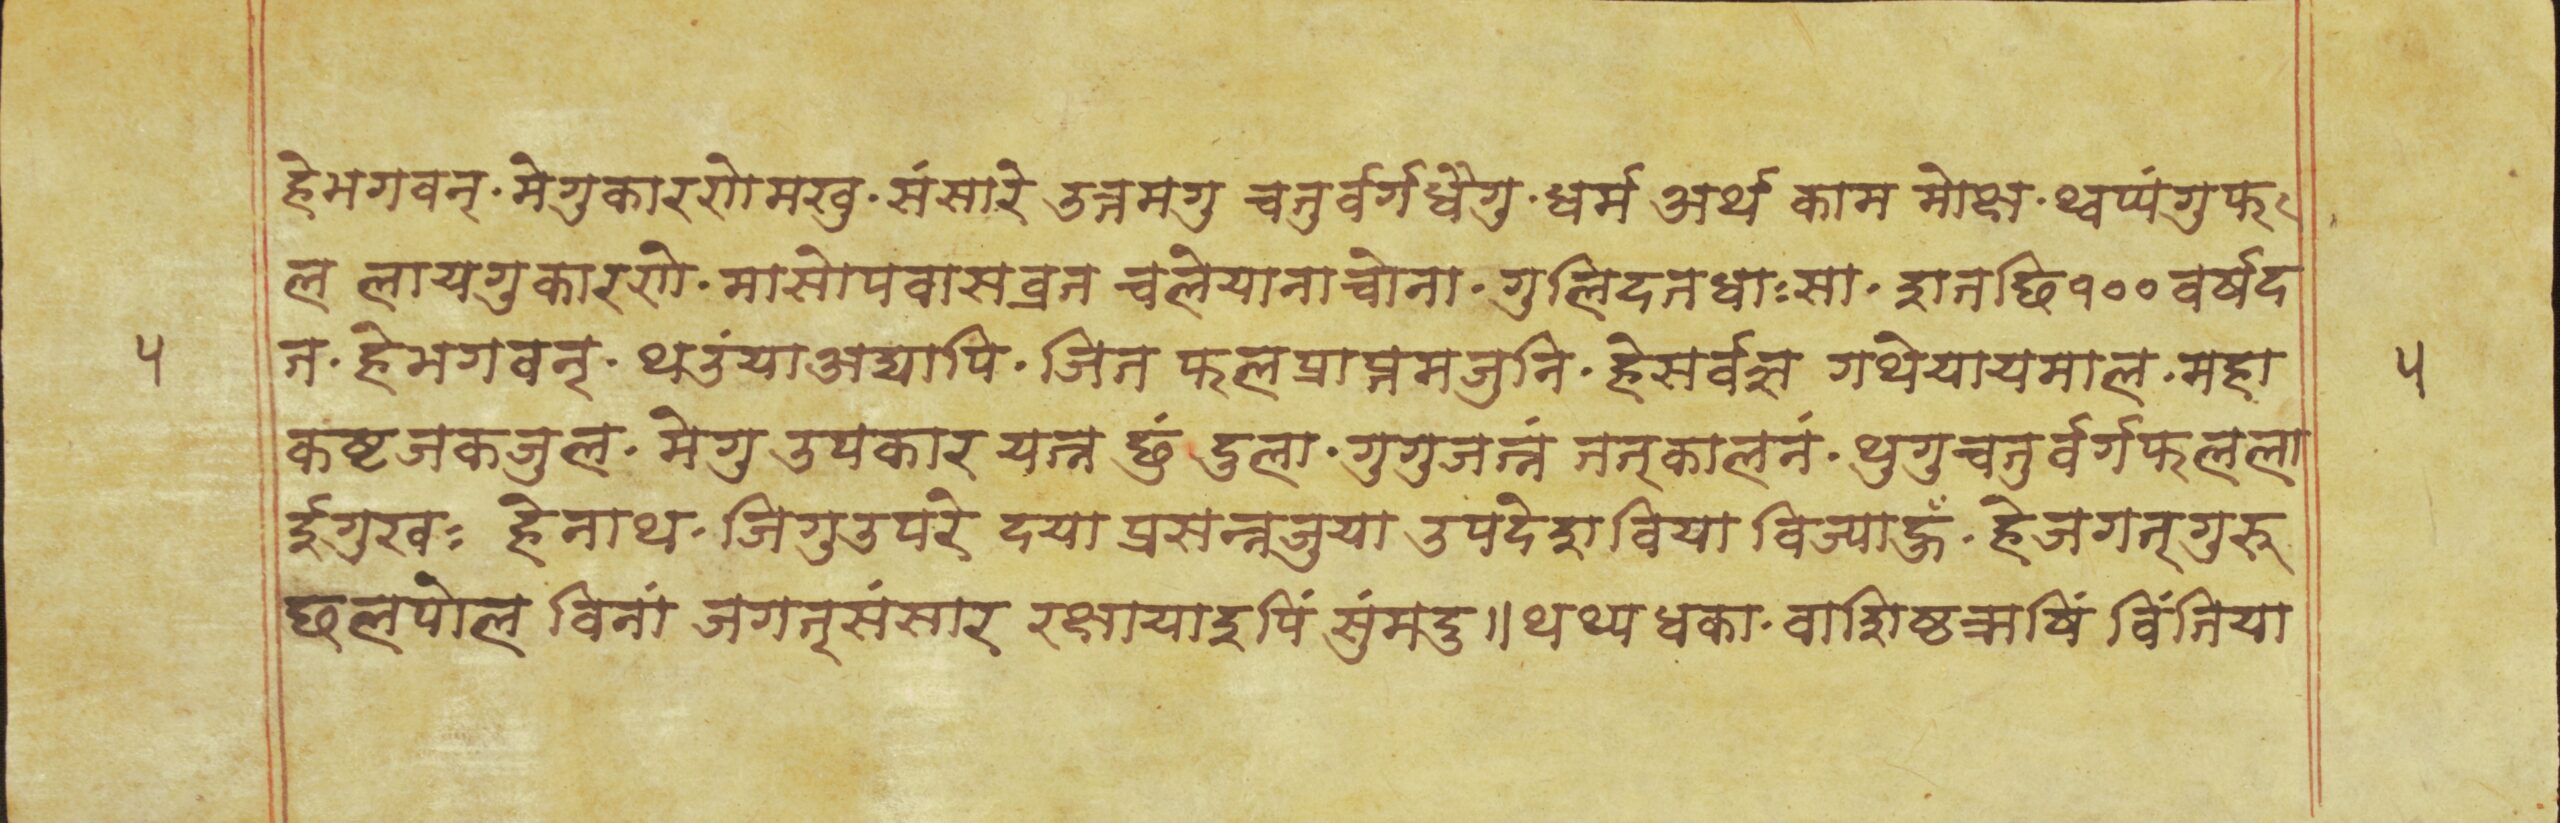 हे भगवन्· मेगु कारणे मखु· संसारे उत्तमगु चतुर्वर्गधैगु· धर्म अर्थ काम मोक्ष· थ्वप्यंगु फ
ल लायगु कारणे· मासोपवासव्रत चलेयाना चोना· गुलि दत धाःसा· शतछि १०० वर्ष द
५ त· हे भगवन्· थउंया अद्यापि· जित फलप्राप्तमजुनि· हे सर्वज्ञ गथे याय माल· महा ५
कष्ट जक जुल· मेगु उपकार यत्न छुं दुला· गुगु जत्नं तत्कालनं· थुगु चतुर्वर्गफल ला
ईगु खः हे नाथ· जिगु उपरे दया प्रसन्नजुया उपदेश विया विज्याहुँ· हे जगत्गुरु
छलपोल विनां जगत्संसार रक्षायाइपिं सुं मदु॥ थथ्य धका· वाशिष्ठऋषिं विंतिया